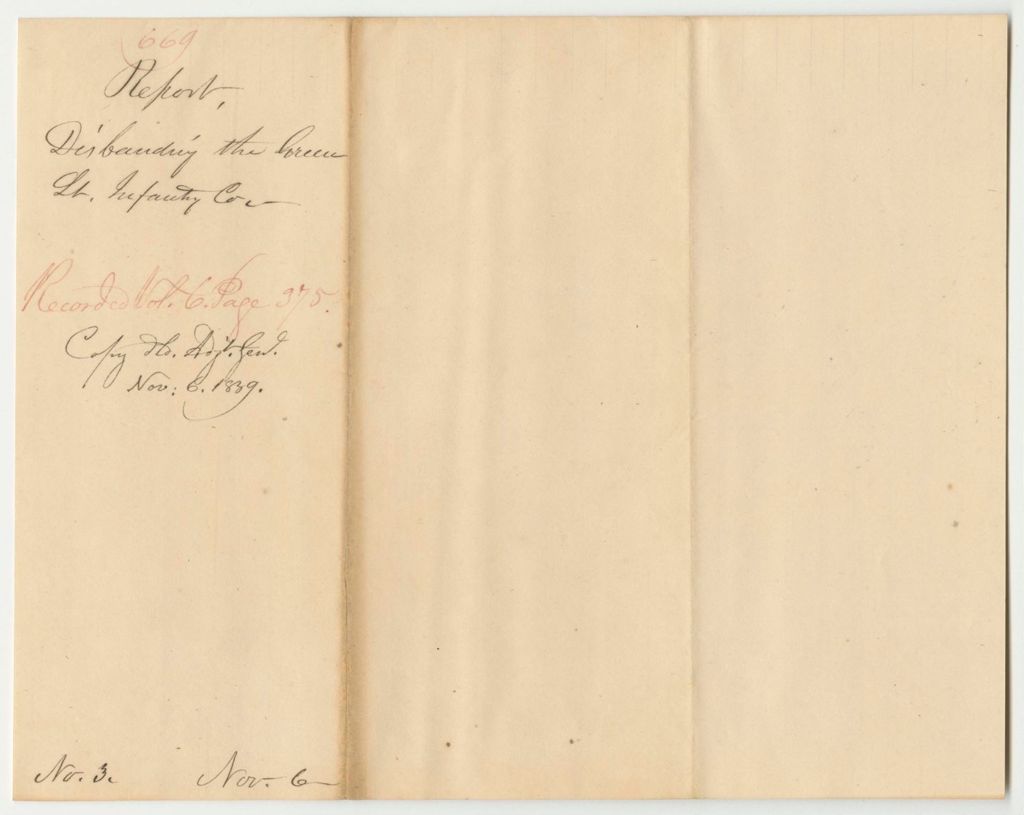 669
Report,
Disbanding the Green
Lt. Infantry Co.
Recorded Vol. 6. Page 375.
Copy dld. Adjt. Genl.
Nov: 6. 1839.
No. 3. Nov. 6